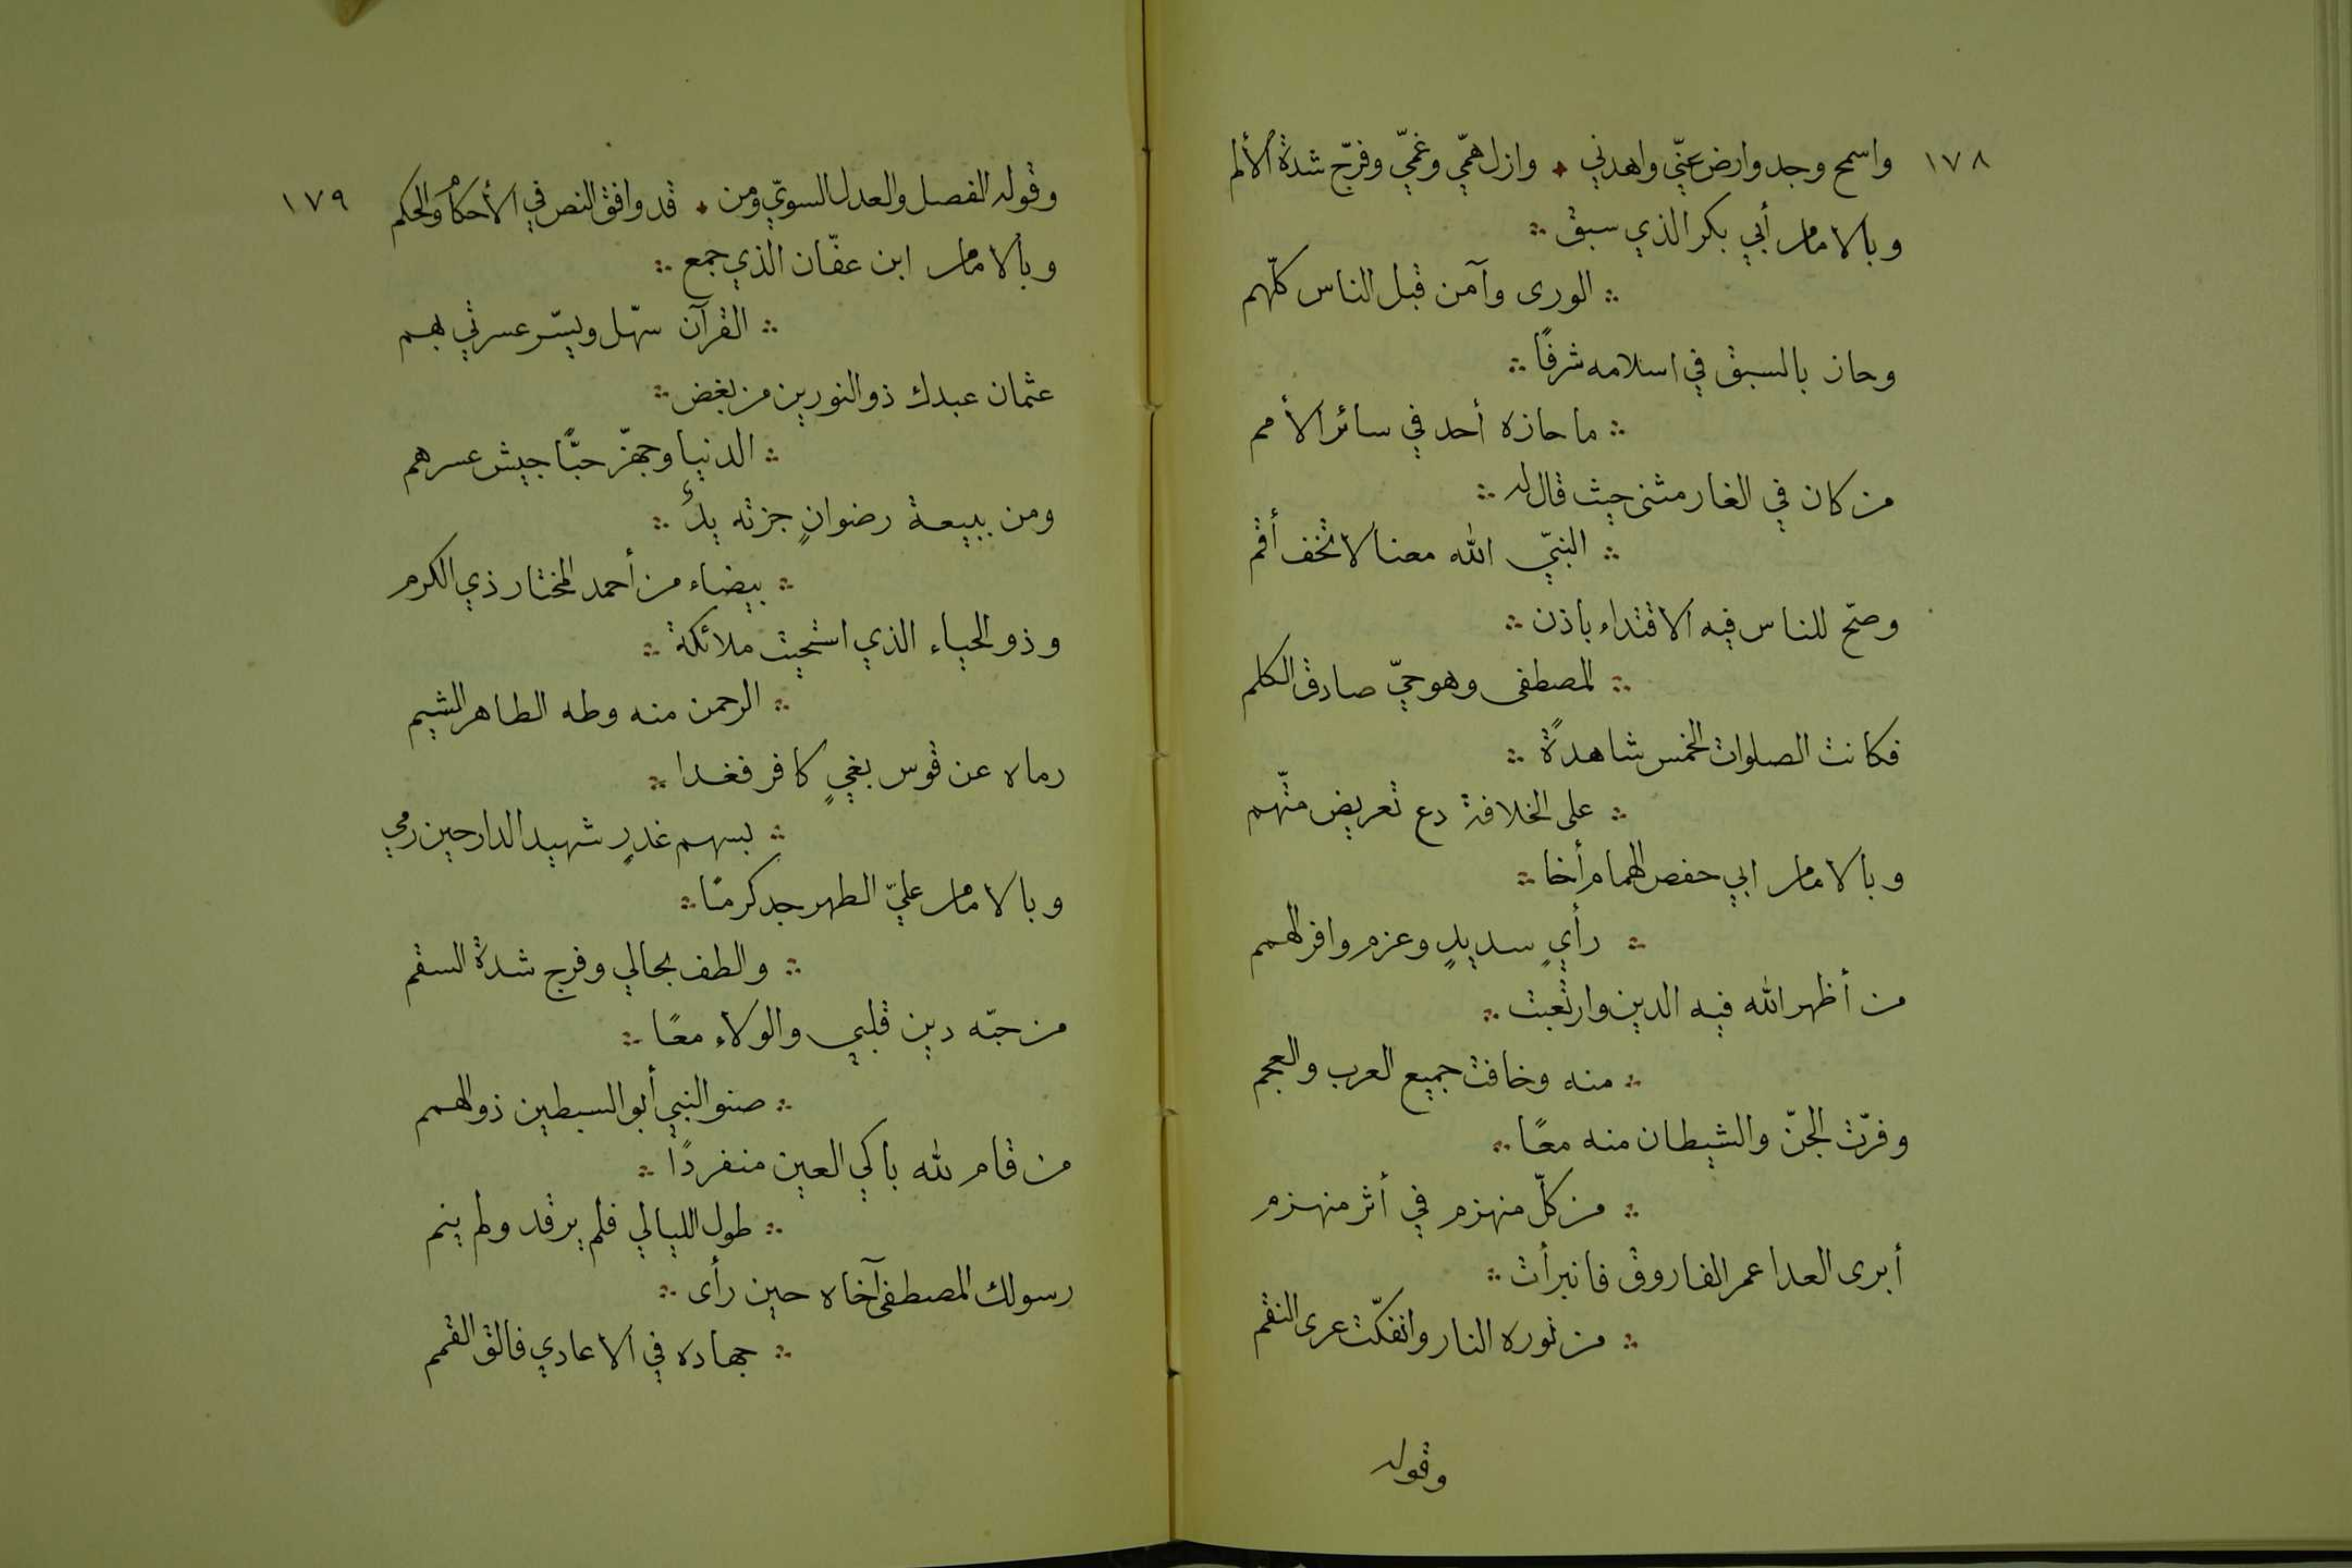 ١٧٨
واسمح وجد وارض عنّي واهدني ٭ وازل همّي وغمّي وفرّج شدة الألم
وبالامام أبي بكر الذي سبق ∴
∴ الورى وآمن قبل الناس كلّهم
وحاز بالسبق في اسلامه شرفًا ∴
∴ ما حازه أحد في سائر الأمم
من كان في الغار مثنى حيث قال له ∴
∴ النبيّ الله معنا لا تخف أقم
وصحّ للناس فيه الاقتداء باذن ∴
∴ المصطفى وهو حيّ صادق الكلم
فكانت الصلوات الخمس شاهدةً ∴
∴ على الخلافة دع تعريض متّهم
وبالامام ابي حفص الهمام أخا ∴
∴ رأيٍ سديدٍ وعزم وافر الهمم
من أظهر الله فيه الدين وارتعبت ∴
∴ منه وخافت جميع العرب والعجم
وفرّت الجنّ والشيطان منه معًا ∴
∴ من كلّ منهزم في أثر منهزم
أبرى العدا عمر الفاروق فانبرأت ∴
∴ من نوره النار وانفكّت عرى النقم
وقوله
١٧٩
وقوله الفصل والعدل السويّ ومن ٭ قد وافق النص في الأحكام والحكم
وبالامام ابن عفّان الذي جمع ∴
∴ القرآن سهّل ويسّر عسرتي بهم
عثمان عبدك ذو النورين من بغض ∴
∴ الدنيا وجهّز حبًّا جيش عسرهم
ومن ببيعة رضوانٍ جزته يدٌ ∴
∴ بيضاء من أحمد المختار ذي الكرم
وذو الحياء الذي استحيت ملائكة ∴
∴ الرحمن منه وطه الطاهر الشيم
رماه عن قوس بغيٍ كافر فغدا ∴
∴ بسهم غدرٍ شهيد الدار حين رمي
وبالامام عليّ الطهر جد كرمًا ∴
∴ والطف بحالي وفرج شدة السقم
من حبّه دين قلبي والولاء معًا ∴
∴ صنو النبي أبو السبطين ذو الهمم
من قام لله باكي العين منفردًا ∴
∴ طول الليالي فلم يرقد ولم ينم
رسولك المصطفى آخاه حين رأى ∴
∴ جهاده في الاعادي فالق القمم